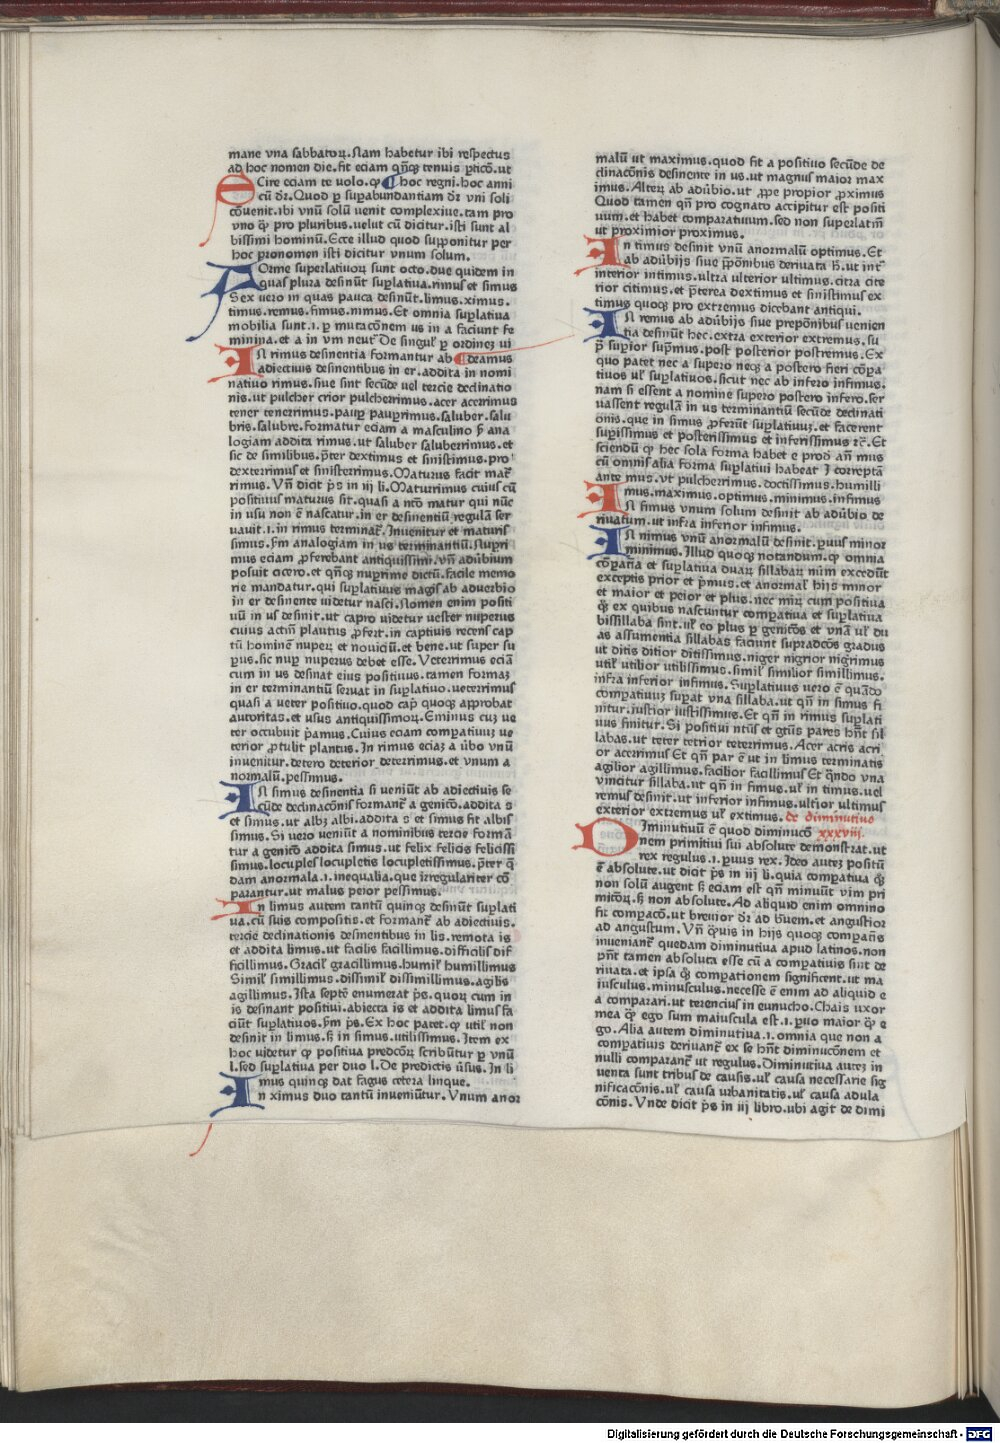 mane vna sabbatoꝝ. Nam habetur ibi respectus
ad hoc nomen die. fit eciam qn̄qꝫ tenuis ꝑticō. ut
SCire eciam te uolo. ꝙ hoc regni. hoc anni
cū dr̄. Quod ꝑ suꝑabundantiam dr̄ vni soli
cōuenit. ibi vnū solū uenit complexiue. tam pro
vno ꝙ̄ pro pluribus. uelut cū dicitur. isti sunt al
bissimi hominū. Ecce illud quod supponitur per
hoc pronomen isti dicitur vnum solum.
FOrme superlatiuoꝝ sunt octo. due quidem in
quas plura desinūt suꝑlatiua. rimus et simus
Sex uero in quas pauca desinūt. limus. ximus.
timus. remus. fimus. nimus. Et omnia suꝑlatiua
mobilia sunt. ı. ꝑ mutacōnem us in a faciunt fe
minina. et a in vm neut᷒ De singul᷒ ꝑ ordinez ui
IN rimus desinentia formantur ab deamus
adiectiuis desinentibus in er. addita in nomi
natiuo rimus. siue sint secūde uel tercie declinatio
nis. ut pulcher crior pulcherrimus. acer acerrimus
tener tenerrimus. pauꝑ pauꝑrimus. saluber. salu
bris. salubre. formatur eciam a masculino ꝑ ana
logiam addita rimus. ut saluber saluberrimus. et
sic de similibus. p̄ter dextimus et sinistimus. pro
dexterrimus et sinisterrimus. Maturus facit mat᷒
rimus. Vn̄ dicit p̄s in iij li. Maturrimus cuius cū
positiuus maturus sit. quasi a ntō matur qui nūc
in usu non ē nascatur. in er desinentiū regulā ser
uauit. ı. in rimus terminat᷒. Inuenitur et maturis
simus. ẜm analogiam in us terminantiū. Nupri
mus eciam ꝓferebant antiquissimi. vn̄ adūbium
posuit cicero. et qn̄qꝫ nuprime dictū. facile memo
rie mandatur. qui suꝑlatiuus magis ab aduerbio
in er desinente uidetur nasci. Nomen enim positi
uū in us desinit. ut capro uidetur uester nuperus
cuius actm̄ plautus ꝓfert. in captiuis recens cap
tū hominē nuperꝫ et nouiciū. et bene. ut super su
ꝑus. sic nuꝑ nuperus debet esse. Veterrimus eciā
cum in us desinat eius positiuus. tamen formaꝫ
in er terminantiū seruat in suꝑlatiuo. ueterrimus
quasi a ueter positiuo. quod cap᷒ quoqꝫ approbat
autoritas. et usus antiquissimoꝝ. Eminus cuꝫ ue
ter occubuit p̄amus. Cuius eciam comꝑatiuuꝫ ue
terior ꝓtulit plantus. In rimus eciaꝫ a ūbo vnū
inuenitur. detero deterior deterrimus. et vnum a
normalū. pessimus.
IN simus desinentia si ueniūt ab adiectiuis se
cūde declinacōnis formant᷒ a genitō. addita s
et simus. ut albꝫ albi. addita s et simus fit albis
simus. Si uero ueniūt a nominibus tercie formā
tur a genitō addita simus. ut felix felicis felicissi
simus. locuples locupletis locupletissimus. p̄ter q̄
dam anormala. ı. inequalia. que irregulariter cō
parantur. ut malus peior pessimus.
IN limus autem tantū quinqꝫ desinūt suꝑlati
ua. cū suis compositis. et formant᷒ ab adiectiuis.
tercie declinationis desinentibus in lis. remota is
et addita limus. ut facilis facillimus. difficilis dif
ficillimus. Gracil᷒ gracillimus. humil᷒ humillimus
Simil᷒ simillimus. dissimil᷒ dissimillimus. agilis
agillimus. Ista septē enumerat p̄s. quoꝝ cum in
is desinant positiui. abiecta is et addita limus fa
ciūt suꝑlatiuos. ẜm p̄s. Ex hoc patet. ꝙ util᷒ non
desinit in limus. ſꝫ in simus. utilissimus. Item ex
hoc uidetur ꝙ positiua predcōꝝ scribūtur ꝑ vnū
l. sed suꝑlatiua per duo l. De predictis ūsus. In li
mus quinqꝫ dat fagus cetera linque.
IN ximus duo tantū inueniūtur. Vnum anor
malū ut maximus. quod fit a positiuo secūde de
clinacōnis desinente in us. ut magnus maior max
imus. Alterꝫ ab adūbio. ut ꝓpe propior ꝓximus
Quod tamen qn̄ pro cognato accipitur est positi
uum. et habet comparatiuum. sed non superlatīm
ut proximior proximus.
IN timus desinit vnū anormalū optimus. Et
ab adūbijs siue p̄pōnibus deriuata h̄. ut int᷒
interior intimus. ultra ulterior ultimus. citra cite
rior citimus. et p̄terea dextimus et sinistimus ex
timus quoqꝫ pro extremus dicebant antiqui.
IN remus ab adūbijs siue prepōnibus uenien
tia desinūt hec. extra exterior extremus. su
p̄ suꝑior sup̄mus. post posterior postremus. Ex
quo patet nec a supero neqꝫ a postero fieri cōꝑa
tiuos ul᷒ suꝑlatiuos. sicut nec ab infero infimus.
nam si essent a nomine supero postero infero. ser
uassent regulā in us terminantiū secūde declinati
onis. que in simus ꝓferūt suꝑlatiuuꝫ. et facerent
suꝑissimus et posterissimus et inferissimus ⁊c̄. Et
sciendū ꝙ hec sola forma habet e prod an̄ mus
cū omnis alia forma suꝑlatiui habeat ı correptā
ante mus. vt pulcherrimus. doctissimus. humilli
mus. maximus. optimus. minimus. infimus
IN fimus vnum solum desinit ab adūbio de
riuatum. ut infra inferior infimus.
IN nimus vnū anormalū desinit. ꝑuus minor
minimus. Illud quoqꝫ notandum. ꝙ omnia
cōꝑatīa et suꝑlatiua duaꝝ sillabaꝝ nūm excedūt
exceptis prior et p̄mus. et anormal᷒ hijs minor
et maior et peior et plus. nec mirꝫ cum positiua
qꝫ̄ ex quibus nascuntur comꝑatiua et suꝑlatiua
bissillaba sint. ul᷒ eo plus ꝑ genitōs et vnā ul᷒ du
as assumentia sillabas faciunt supradcōs gradus
ut ditis ditior ditissimus. niger nigrior nigrimus
util᷒ utilior utilissimus. simil᷒ similior simillimus.
infra inferior infimus. Suꝑlatiuus uero ē quādo
comꝑatiuuꝫ suꝑat vna sillaba. ut qn̄ in simus fi
nitur. iustior iustissimus. Et qn̄ in rimus suꝑlati
uus finitur. Si positiui ntūs et gtūs pares hn̄t sil
labas. ut teter tetrior teterrimus. Acer acris acri
or acerrimus Et qn̄ par ē ut in limus terminatis
agilior agillimus. facilior facillimus Et qn̄do vna
vincitur sillaba. ut qn̄ in fimus. ul᷒ in timus. uel
remus desinit. ut inferior infimus. ultior ultimus
exterior extremus ul᷒ extimus. de diminutiuo
DIminutiuū ē quod diminucō xxxviij.
nem primitiui sui absolute demonstrat. ut
rex regulus. ı. ꝑuus rex. Ideo auteꝫ positū
ē absolute. ut dicit p̄s in iij li. quia comꝑatiua qꝫ̄
non solū augent ſꝫ eciam est qn̄ minuūt vim pri
mitōꝝ. ſꝫ non absolute. Ad aliquid enim omnino
fit comꝑacō. ut breuior dr̄ ad b̄uem. et angustior
ad angustum. Vn̄ qꝫ̄uis in hijs quoqꝫ comꝑan̄s
inueniant᷒ quedam diminutiua apud latinos. non
pn̄t tamen absoluta esse cū a comꝑatiuis sint de
riuata. et ipsa qꝫ̄ comꝑationem significent. ut ma
iusculus. minusculus. necesse ē enim ad aliquid e
a comparari. ut terencius in eunucho. Thais uxor
mea qꝫ̄ ego sum maiuscula est. ı. ꝑuo maior qꝫ̄ e
go. Alia autem diminutiua. ı. omnia que non a
comꝑatiuis deriuant᷒ ex se hn̄t diminucōnem et
nulli comparant᷒ ut regulus. Diminutiua auteꝫ in
uenta sunt tribus de causis. ul᷒ causa necessarie sig
nificacōnis. ul᷒ causa urbanitatis. ul᷒ causa adula
cōnis. Vnde dicit p̄s in iij libro. ubi agit de dimi
Digitalisierung gefördert durch die Deutsche Forschungsgemeinschaft - DFG